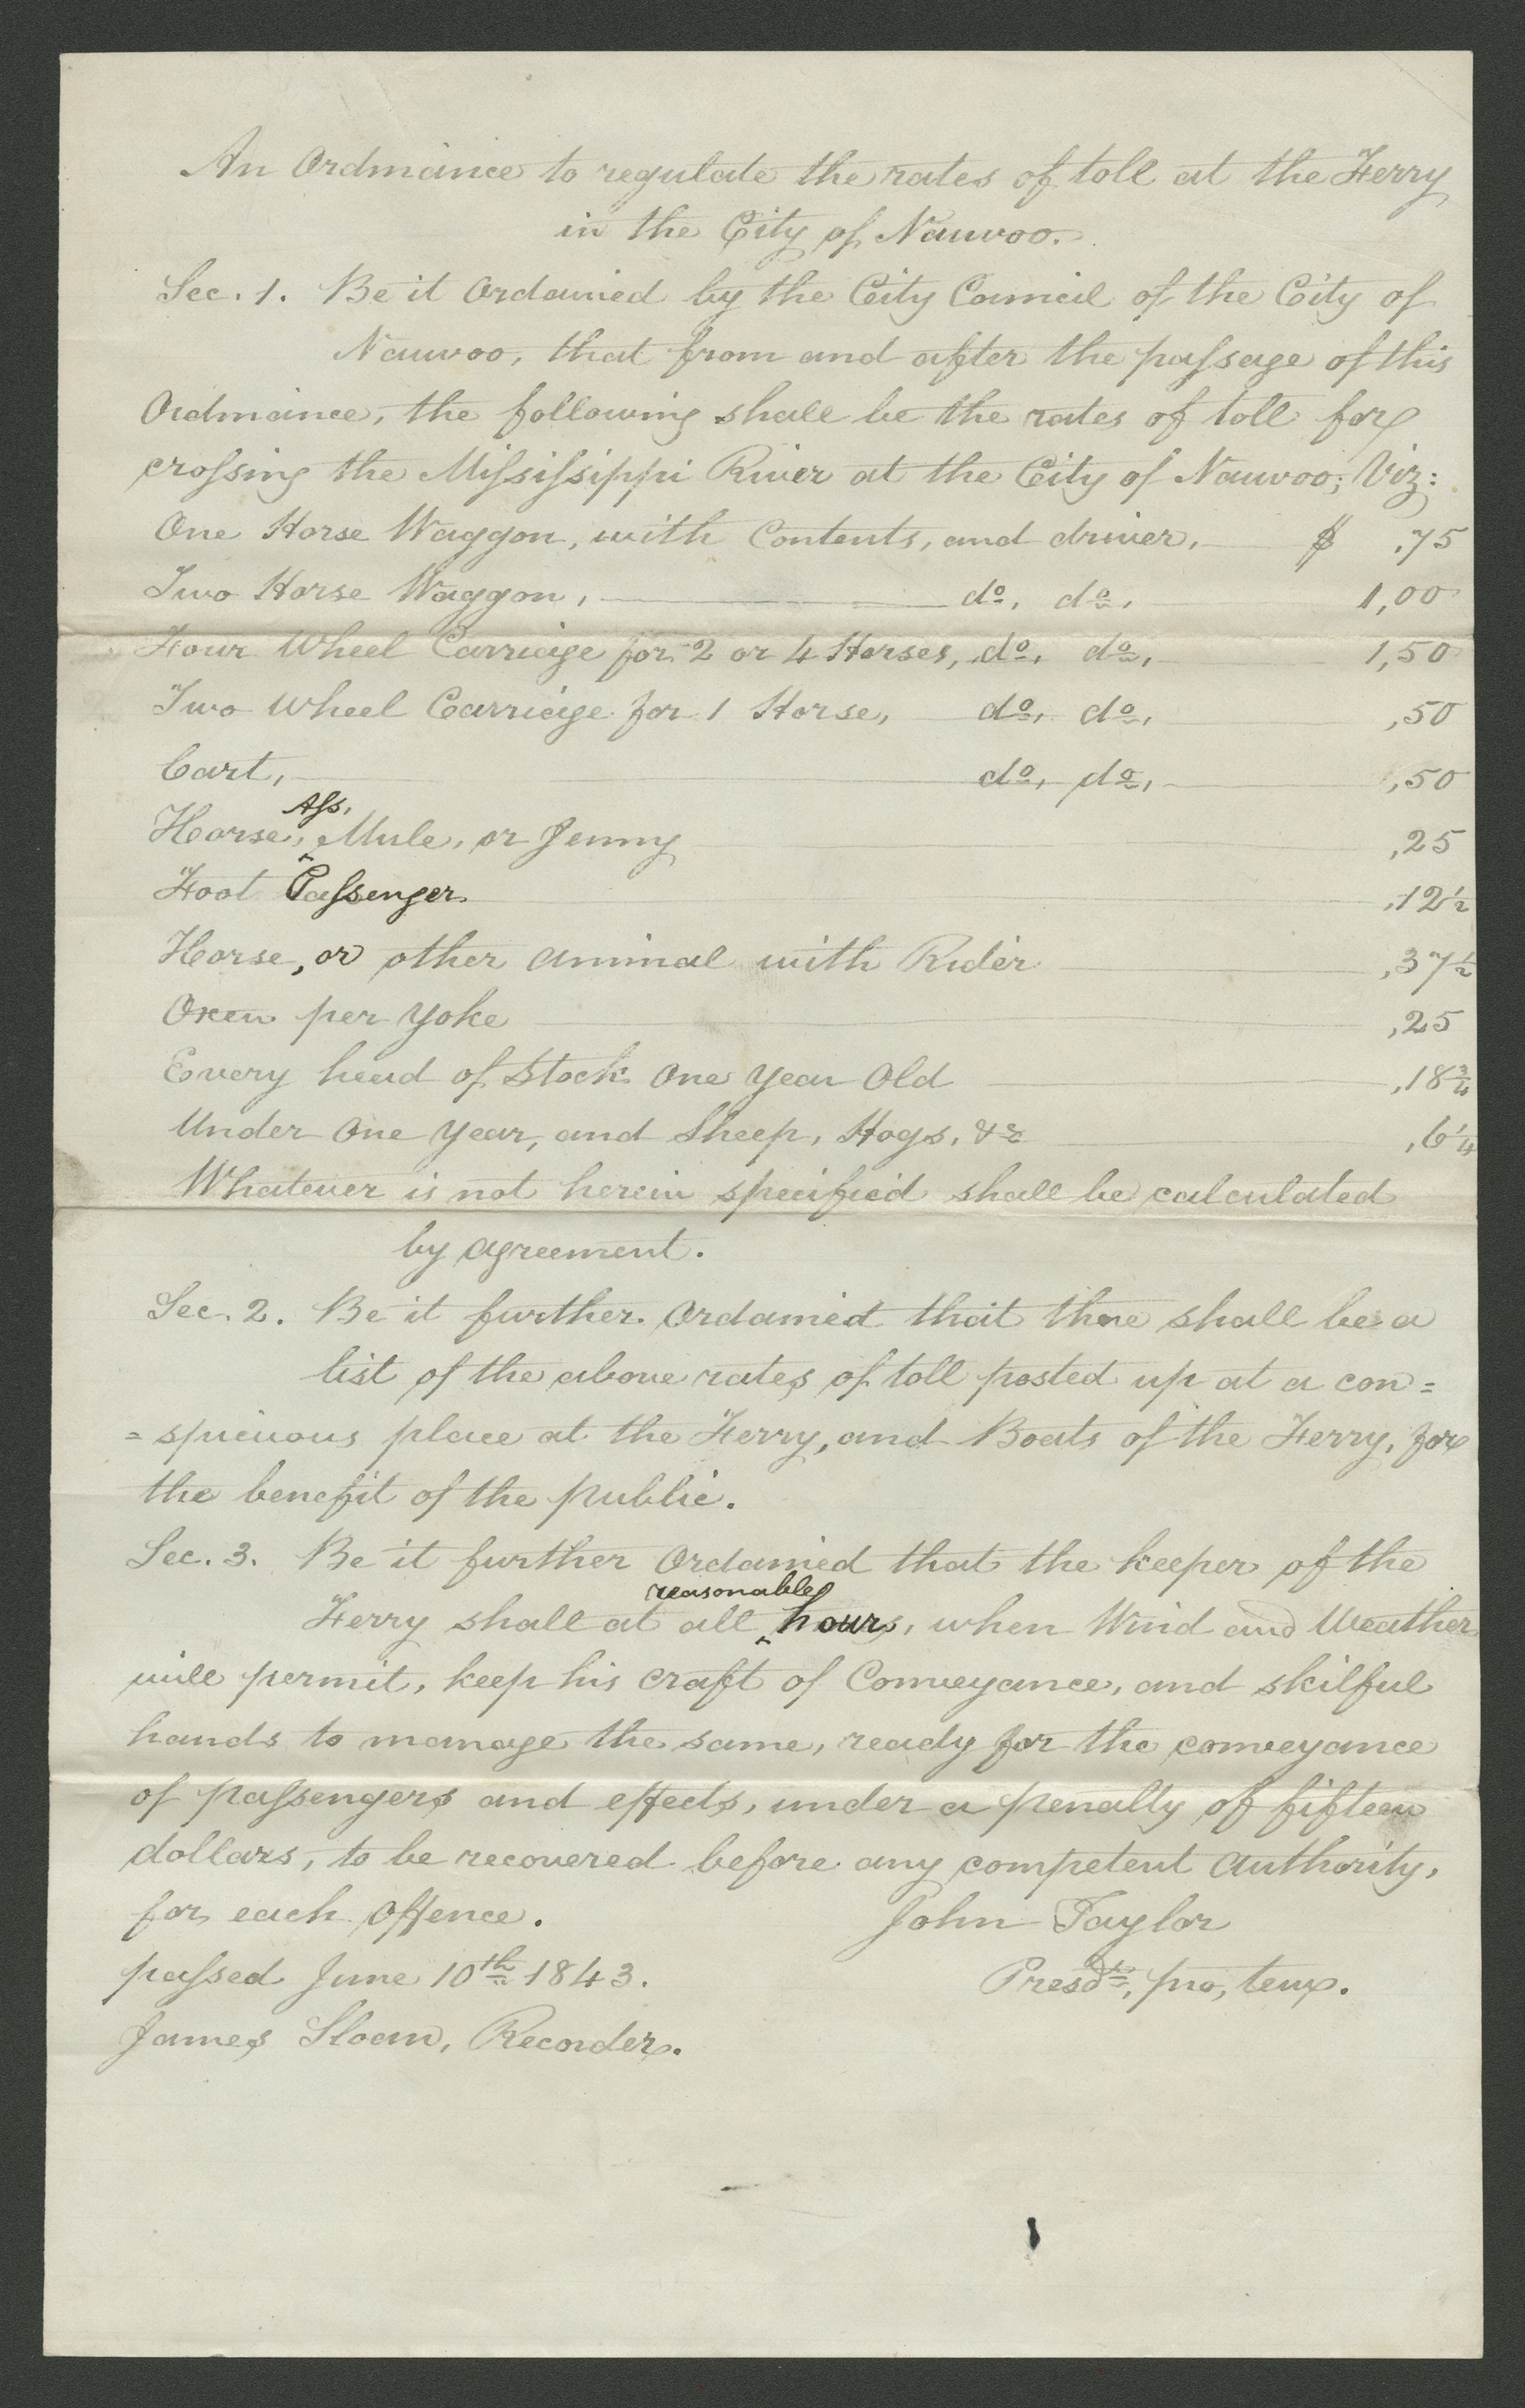 An Ordinance to regulate the rates of toll at the Ferry
in the City of Nauvoo.
Sec. 1. Be it Ordained by the City Council of the City of
Nauvoo, that from and after the passage of this
Ordinance, the following shall be the rates of toll for
crossing the Mississippi River at the City of Nauvoo; Viz:
One Horse Waggon, with Contents, and driver, $ .75
Two Horse Waggon, do, do, 1,00
Four Wheel Carriage for 2 or 4 Horses, do, do, 1,50
Two Wheel Carriage for 1 Horse, do, do, ,50
Cart, do, do, ,50
Ass,
Horse, ^ Mule, or Jenny ,25
Foot Passenger ,12½
Horse, or other animal with Rider ,37½
Oxen per Yoke ,25
Every head of Stock One Year Old ,18¾
Under One Year, and Sheep, Hogs, &c ,6¼
Whatever is not herein specified shall be calculated
by agreement.
Sec. 2. Be it further Ordained that there shall be a
list of the above rates of toll posted up at a con=
=spicuous place at the Ferry, and Boats of the Ferry, for
the benefit of the Public.
Sec. 3. Be it further Ordained that the keeper of the
reasonable
Ferry shall at all ^ hours, when Wind and Weather
will permit, keep his craft of Conveyance, and skilful
hands to manage the same, ready for the conveyance
of passengers and effects, under a penalty of fifteen
dollars, to be recovered before any competent authority,
for each Offence. John Taylor
passed June 10th 1843. Presdt, pro, tem.
James Sloan, Recorder.